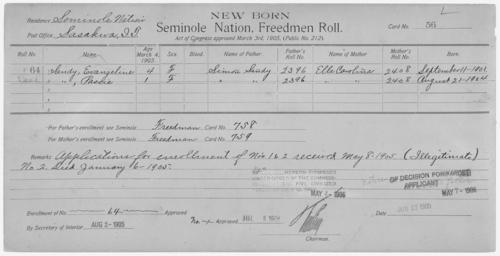 NEW BORN
Residence Seminole Nation
Seminole Nation, Freedmen Roll.
Card No. 56
Post Office, Sasakwa, I.T.
Act of Congress approved March 3rd, 1905, (Public No. 212).
Roll No. Name Age March 4, 1905. Sex. Blood. Name of Father. Father's Roll No. Name of Mother. Mother's Roll No. Born.
64 Sandy, Evangeline 4 F Simon Sandy 2396 Elle Carolina 2408 September-11-1901.
" , 1 F " " 2396 " " 2408 August-21-1904
For Father's enrollment see Seminole Freedman Card No. 758
For Mother's enrollment see Seminole Freedman Card No. 759
Remarks: Applications for enrollment of Nos. 1 & 2 received May 8-1905. (Illegitimate)
No. 2. Died January 6-1905.
OF DECISION FORWARDED
APPLICANT MAY 7 - 1906
Enrollment of No. 64 Approved
No. 1 Approved
By Secretary of Interior AUG 2- 1905
Chairman.